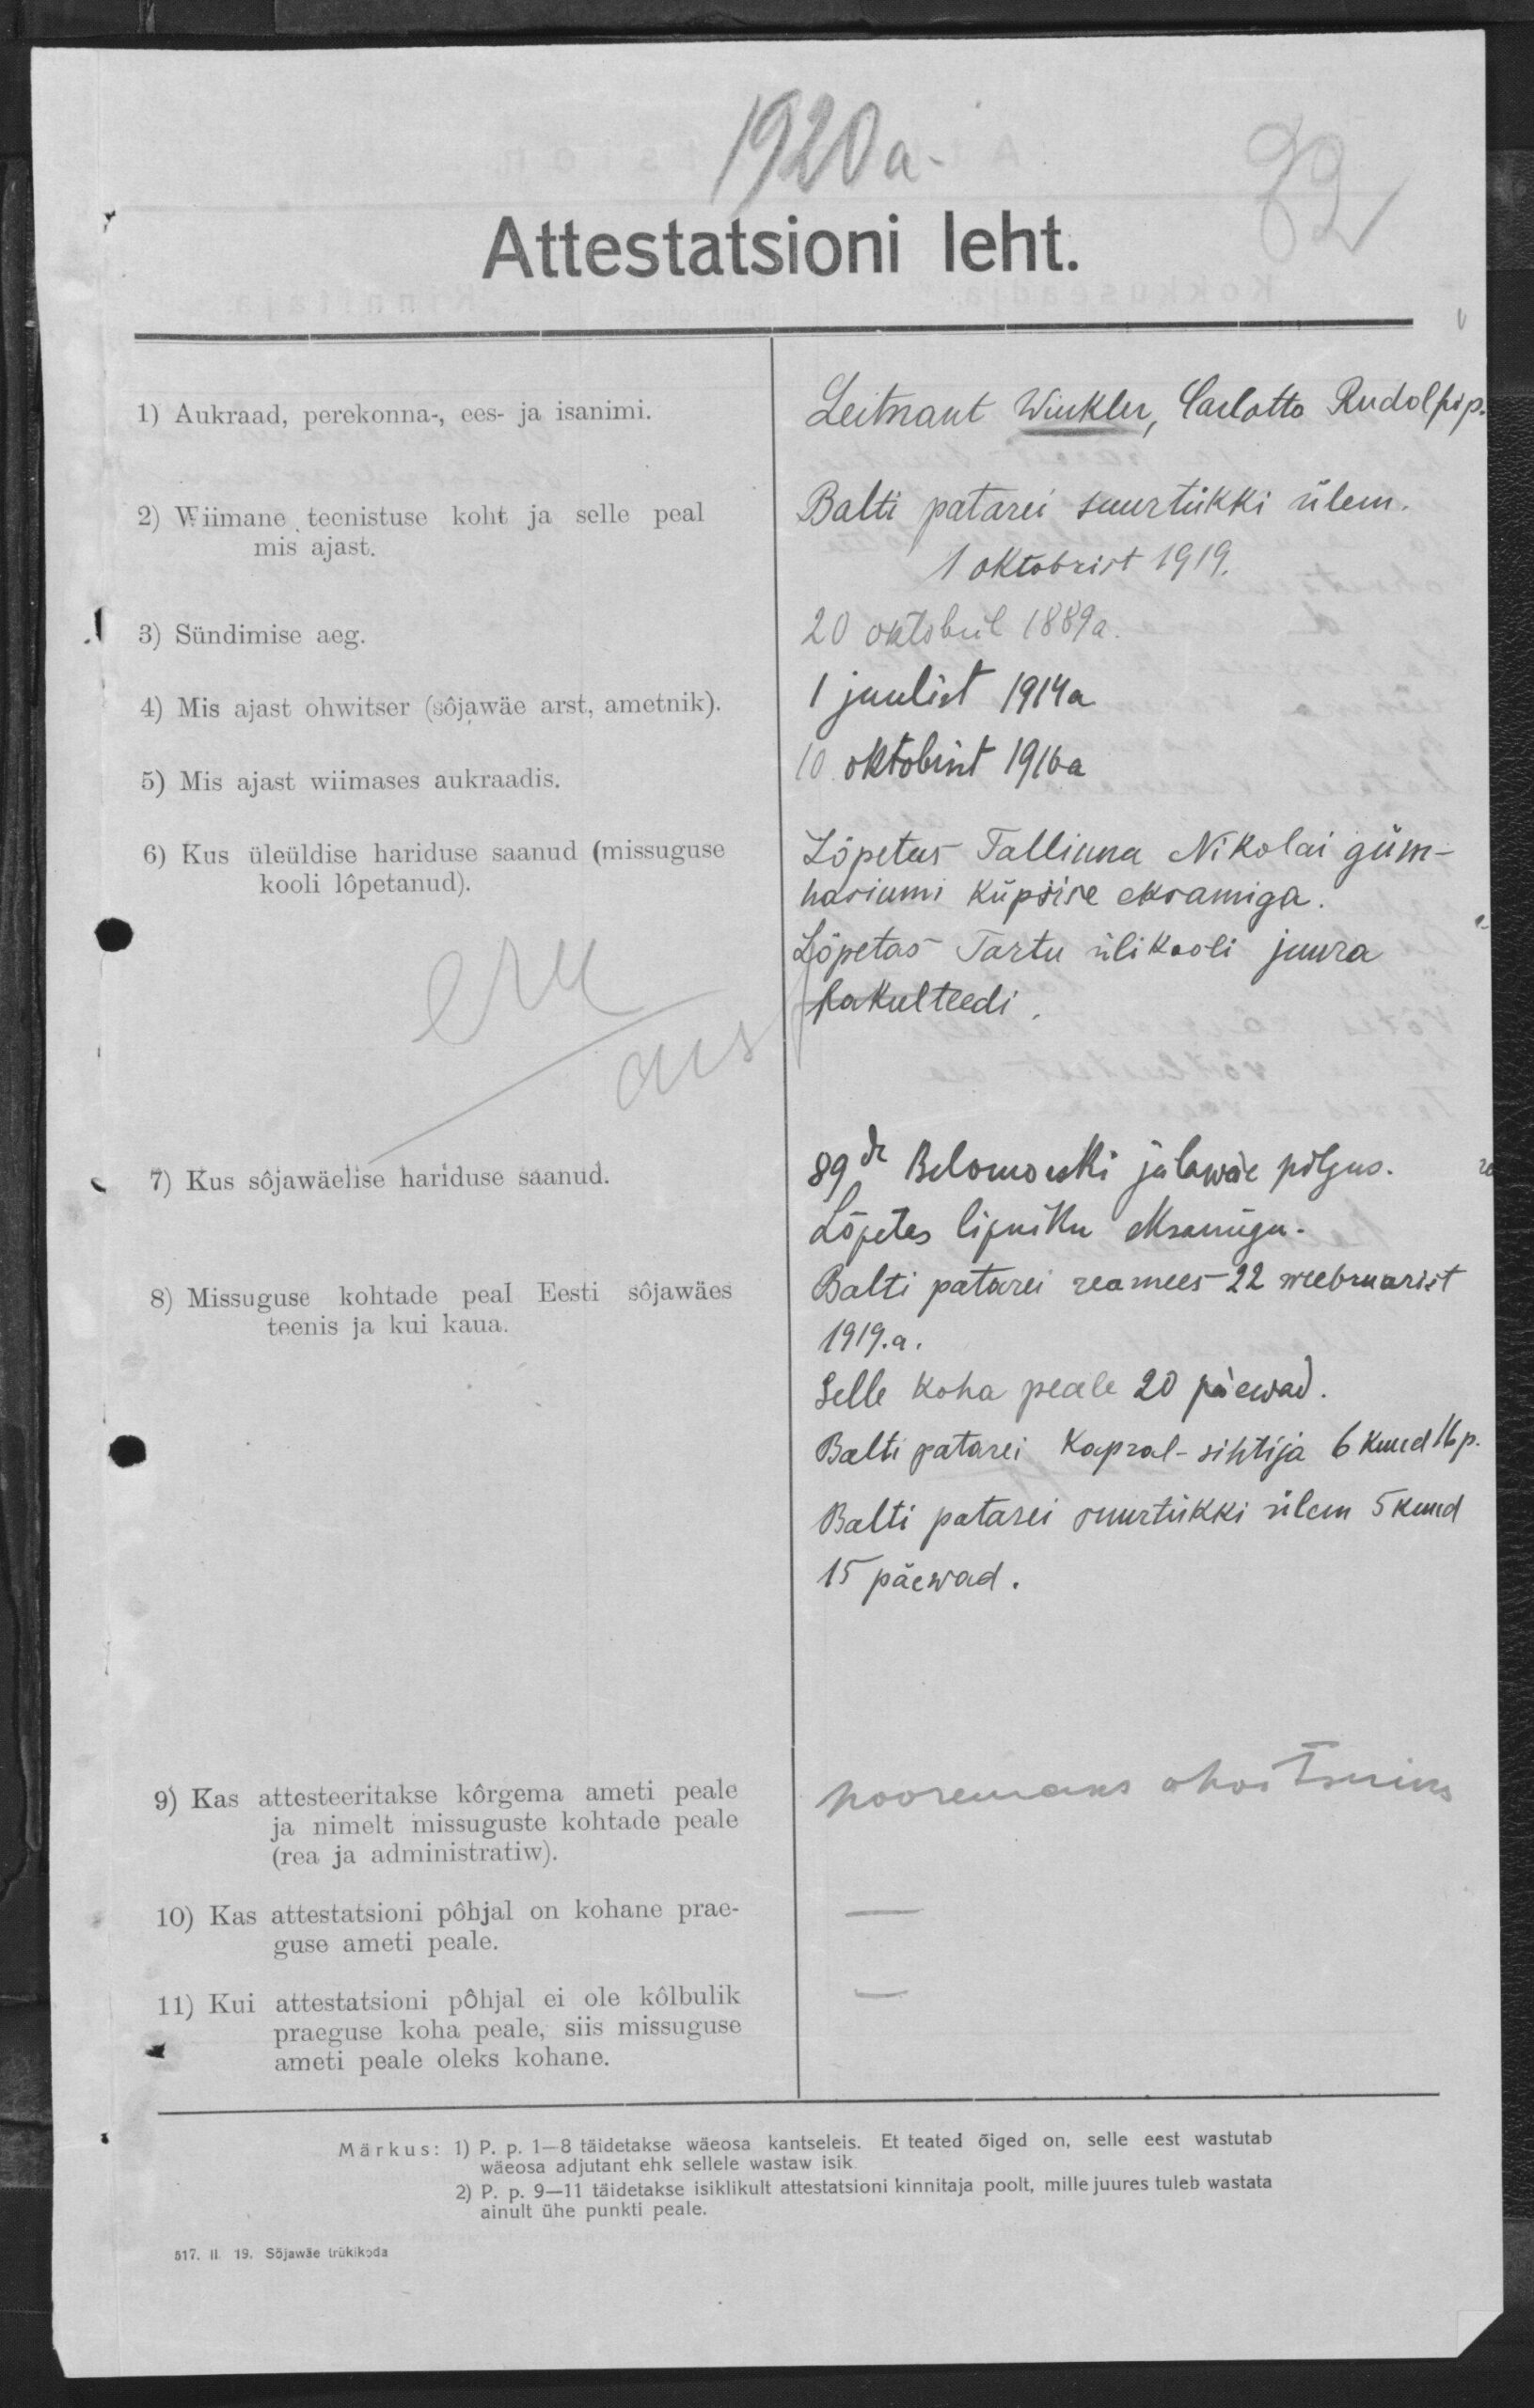 1920 a.
82
Attestatsioni leht.
1) Aukraad, perekonna-, ees- ja isanimi.
Leitnant Winkler, Carlotto Rudolfi p.
2) Wiimane teenistuse koht ja selle peal
mis ajast.
Balti patarei suurtükki ülem.
1 oktobrist 1919.
3) Sündimise aeg.
20 oktobril 1889 a.
4) Mis ajast ohwitser (sôjawäe arst, ametnik).
1 juulist 1914 a
5) Mis ajast wiimases aukraadis.
10 oktobrist 1916 a
6) Kus üleüldise hariduse saanud (missuguse
kooli lôpetanud).
Lõpetas Tallinna Nikolai güm-
nasiumi küpsise eksamiga.
Lõpetas Tartu ülikooli juura
fakulteedi.
eru
7) Kus sôjawäelise hariduse saanud.
89 Belomorski jalawäe polgus.
Lõpetas lipniku eksamiga.
8) Missuguse kohtade peal Eesti sôjawäes
teenis ja kui kaua.
Balti patarei reamees 22 weebruarist
1919. a.
Selle koha peale 20 päewad.
Balti patarei Kapral-sihtija 6 kuud 16 p.
Balti patarei suurtükki ülem 5 kuud
15 päewad.
9) Kas attesteeritakse kôrgema ameti peale
ja nimelt missuguste kohtade peale
(rea ja administratiw).
nooremaks ohvitseriks
10) Kas attestatsioni pôhjal on kohane prae-
guse ameti peale.
—
11) Kui attestatsioni pôhjal ei ole kôlbulik
praeguse koha peale, siis missuguse
ameti peale oleks kohane.
—
Märkus: 1) P. p. 1—8 täidetakse wäeosa kantseleis. Et teated õiged on, selle eest wastutab
wäeosa adjutant ehk sellele wastaw isik
2) P. p. 9—11 täidetakse isiklikult attestatsioni kinnitaja poolt, mille juures tuleb wastata
ainult ühe punkti peale.
517. II. 19. Sõjawäe trükikoda